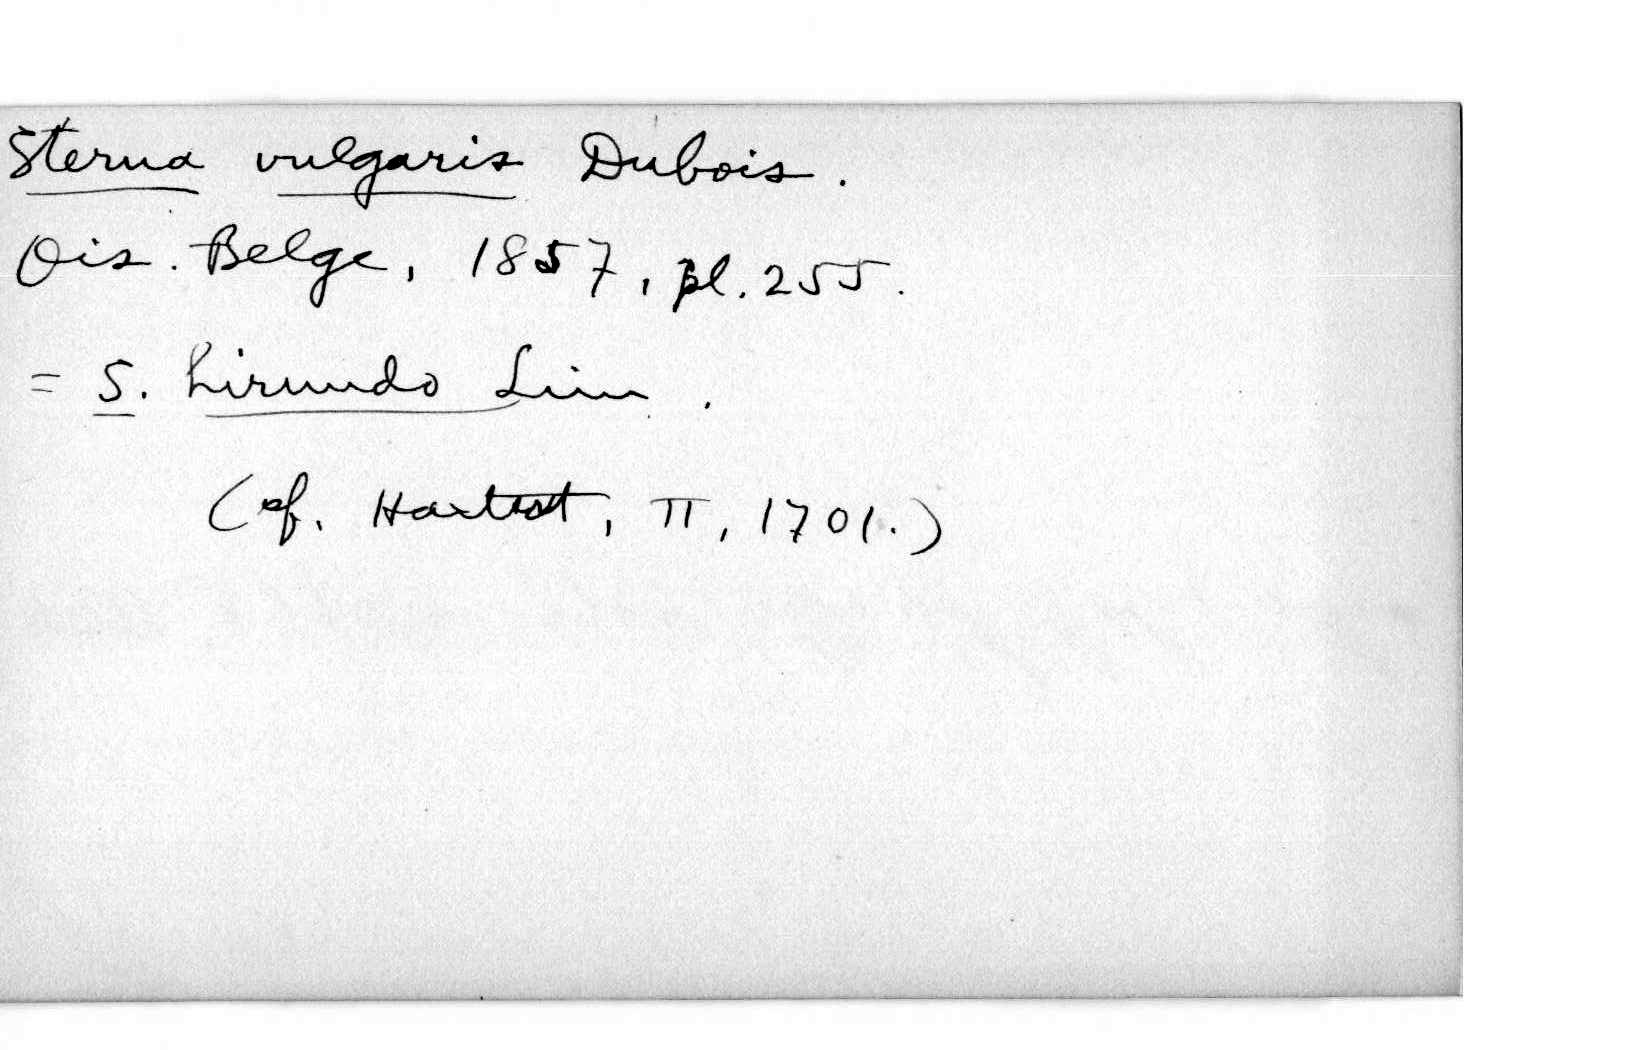 Sterna vulgaris Dubois.
Ois. Belge, 1857, pl. 255.
= S. hirundo Linn.
(cf. Hartert, II, 1701.)